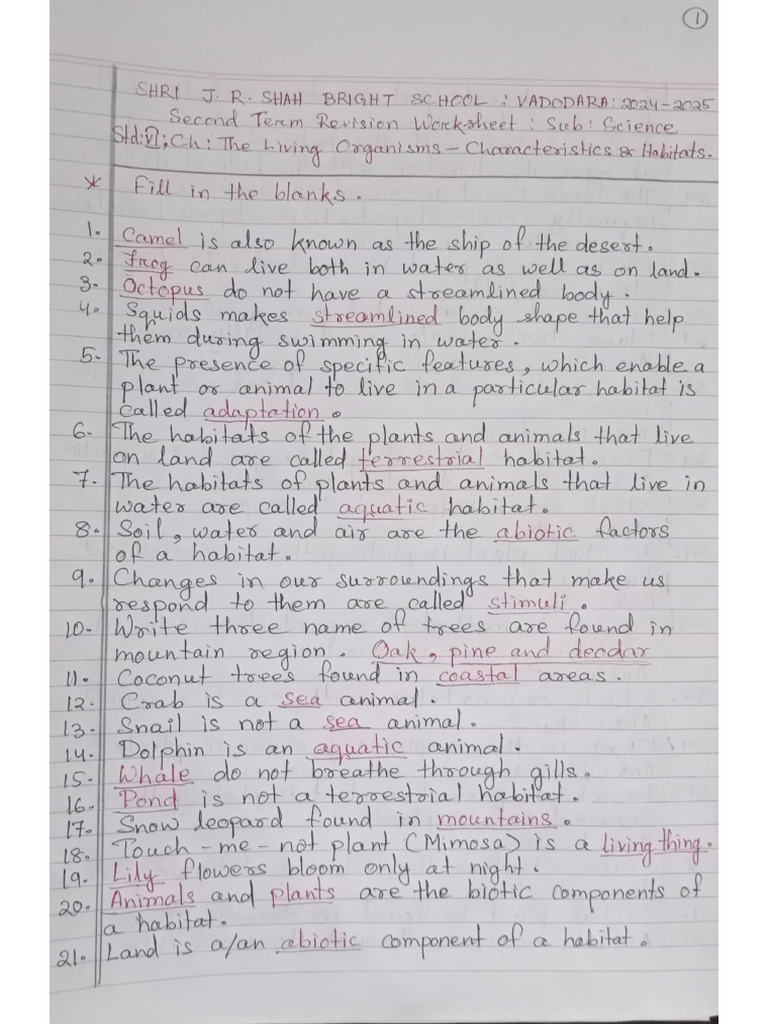 1
SHRI J. R. SHAH BRIGHT SCHOOL : VADODARA : 2024-2025
Second Term Revision Worksheet : Sub : Science
Std:VI; Ch: The Living Organisms - Characteristics & Habitats.
* Fill in the blanks.
1. Camel is also known as the ship of the desert.
2. frog can live both in water as well as on land.
3. Octopus do not have a streamlined body.
4. Squids makes streamlined body shape that help
them during swimming in water.
5. The presence of specific features, which enable a
plant or animal to live in a particular habitat is
called adaptation.
6. The habitats of the plants and animals that live
on land are called terrestrial habitat.
7. The habitats of plants and animals that live in
water are called aquatic habitat.
8. Soil, water and air are the abiotic factors
of a habitat.
9. Changes in our surroundings that make us
respond to them are called stimuli.
10. Write three name of trees are found in
mountain region. Oak, pine and deodar
11. Coconut trees found in coastal areas.
12. Crab is a sea animal.
13. Snail is not a sea animal.
14. Dolphin is an aquatic animal.
15. Whale do not breathe through gills.
16. Pond is not a terrestrial habitat.
17. Snow leopard found in mountains.
18. Touch-me-not plant (Mimosa) is a living thing.
19. Lily flowers bloom only at night.
20. Animals and plants are the biotic components of
a habitat.
21. Land is a/an abiotic component of a habitat.